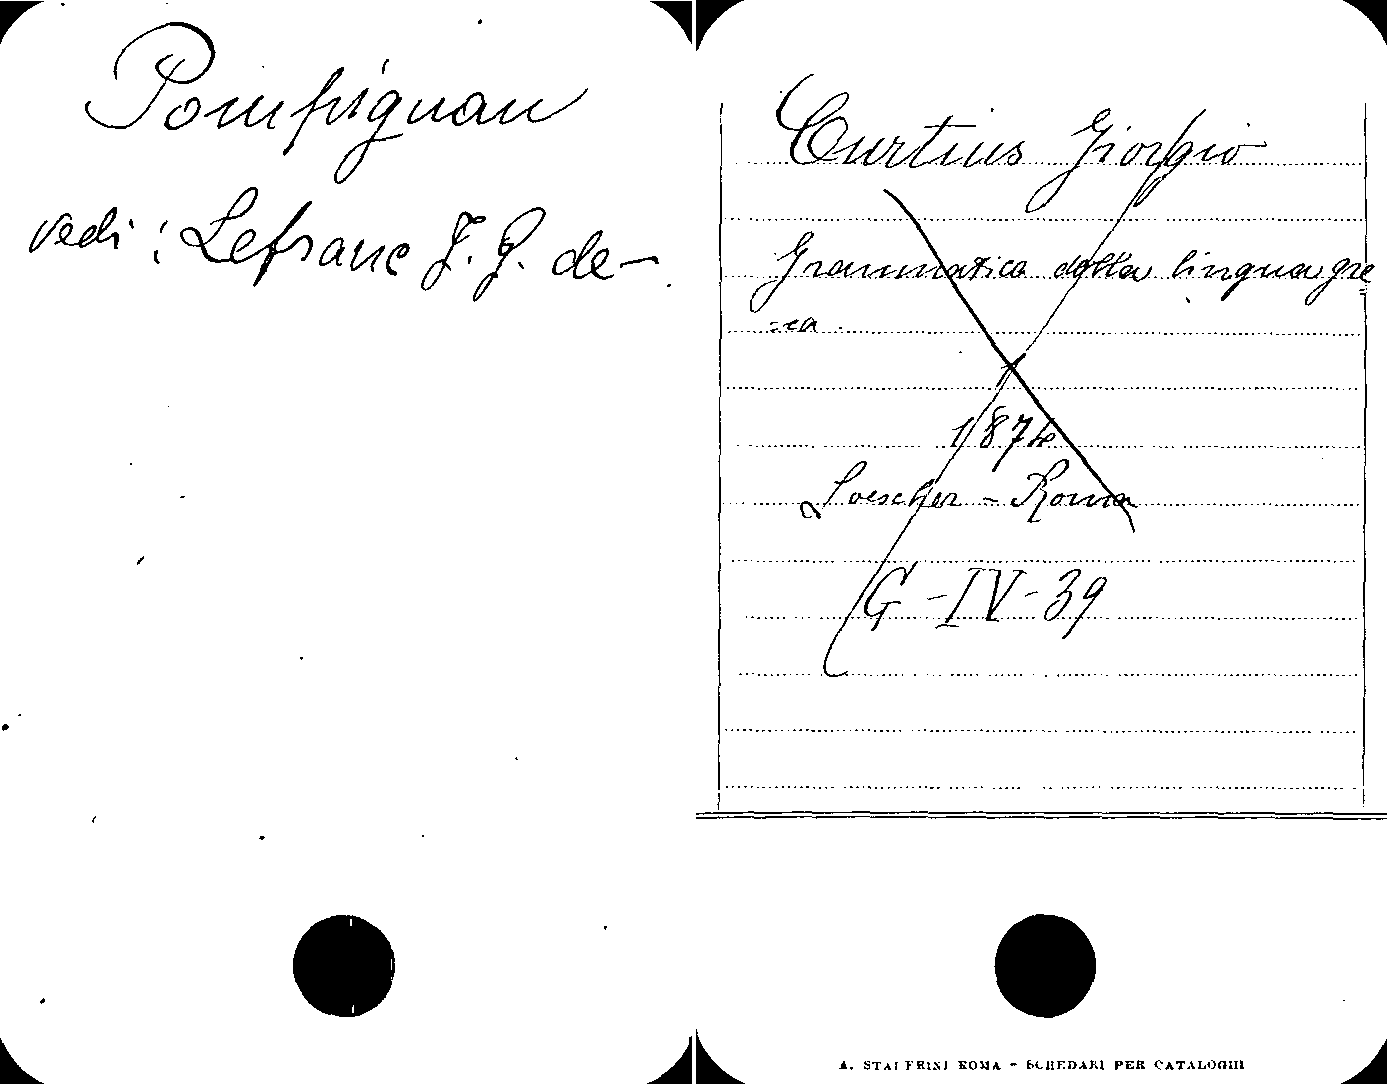 Pompignan
vedi: Lefranc J. J. de-
Curtius Giorgio
Grammatica della lingua gre
=ca.
1874
Loescher - Roma
G-IV-39
A. STADERINI ROMA - SCHEDARI PER CATALOGHI